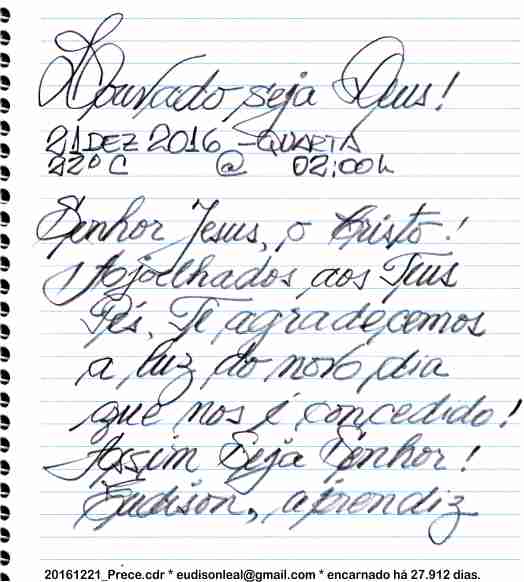 Louvado seja Deus!
21 DEZ 2016 - QUARTA
22º C @ 02:00h
Senhor Jesus, o Cristo!
Ajoelhados aos Teus
Pés, Te agradecemos
a luz do novo dia
que nos é concedido!
Assim Seja Senhor!
Eudison, aprendiz
20161221_Prece.cdr * eudisonleal@gmail.com * encarnado há 27.912 dias.